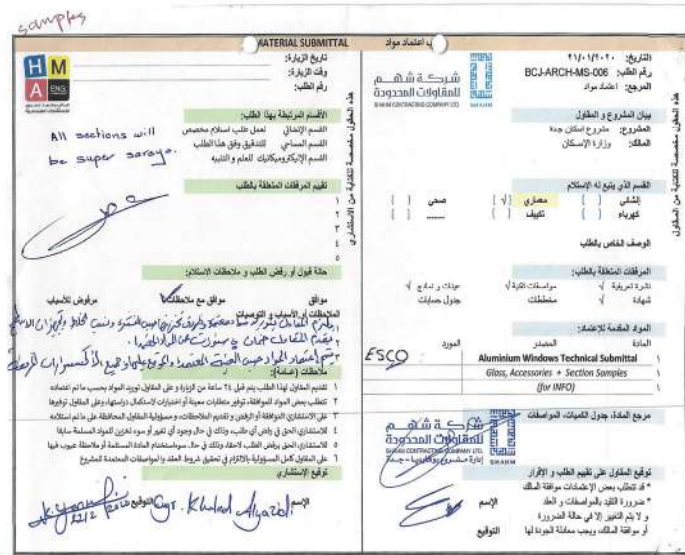 samples
طلب اعتماد مواد
MATERIAL SUBMITTAL
التاريخ: ٢١/٠١/٢٠٢٠
رقم الطلب: BCJ-ARCH-MS-006
المرجع: اعتماد مواد
شركة شهم
للمقاولات المحدودة
SHAHM CONTRACTING COMPANY LTD
SHAHM
بيان المشروع و المقاول
المشروع: مشروع اسكان جدة
المالك: وزارة الإسكان
القسم الذي يتبع له الإستلام
إنشائي ( ) معماري (√) صحي ( )
كهرباء ( ) تكييف ( ) ........ ( )
الوصف الخاص بالطلب
المرفقات المتعلقة بالطلب:
نشرة تعريفية √ مواصفات تقنية √ عينات و نماذج √
شهادة √ مخططات جدول حسابات
المواد المقدمة للإعتماد:
المادة المصدر المورد
١ Aluminium Windows Technical Submittal ESCO
١ Glass, Accessories + Section Samples
١ (for INFO)
مرجع المادة، جدول الكميات، المواصفات
شركة شهم
للمقاولات المحدودة
SHAHM CONTRACTING COMPANY LTD
SHAHM
توقيع المقاول على تقييم الطلب و الإقرار
* قد تتطلب بعض الإعتمادات موافقة المالك
* ضرورة التقيد بالمواصفات و العقد
و لا يتم التغيير إلا في حالة الضرورة
أو موافقة المالك، ويجب معادلة الجودة لها
الإسم
التوقيع
هذه الحقول مخصصة للكتابة من المقاول
HMA ENG
تاريخ الزيارة:
وقت الزيارة:
رقم الطلب:
الأقسام المرتبطة بهذا الطلب:
القسم الإنشائي لعمل طلب استلام مخصص
القسم المساحي للتدقيق وفق هذا الطلب
القسم الإليكتروميكانيك للعلم و التنبيه
All sections will
be super saraya.
تقييم المرفقات المتعلقة بالطلب
١
٢
٣
٤
٥
حالة قبول أو رفض الطلب و ملاحظات الاستلام:
موافق موافق مع ملاحظات √ مرفوض للأسباب
الملاحظات أو الأسباب و التوصيات
ملاحظات (عامة):
١ تقديم المقاول لهذا الطلب يتم قبل ٢٤ ساعة من الزيارة و على المقاول توريد المواد بحسب ما تم اعتماده
٢ تتطلب بعض المواد للموافقة، توفير متطلبات معينة أو اختبارات لاستكمال دراستها، وعلى المقاول توفيرها
٣ على الاستشاري الموافقة أو الرفض و تقديم الملاحظات، و مسؤولية المقاول المحافظة على ما تم استلامه
٤ للاستشاري الحق في رفض أي طلب، وذلك في حال وجود أي تغيير أو سوء تخزين للمواد المسلمة سابقا
٥ للاستشاري الحق برفض الطلب لاحقا، وذلك في حال سوء استخدام المادة المستلمة أو ملاحظة عيوب فيها
٦ على المقاول كامل المسؤولية بالالتزام في تحقيق شروط العقد و المواصفات المعتمدة للمشروع
توقيع الإستشاري
الإسم Engr. Khaled Alyazidi التوقيع
هذه الحقول مخصصة للكتابة من الإستشاري